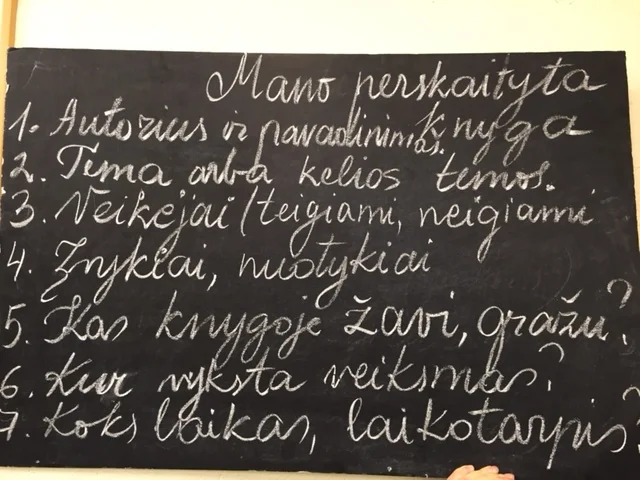 Mano perskaityta
knyga
1. Autorius ir pavadinimas.
2. Tema arba kelios temos.
3. Veikėjai (teigiami, neigiami
4. Žnykiai, nuotykiai
5. Kas knygoje žavi, gražu?
6. Kur vyksta veiksmas?
7. Koks laikas, laikotarpis?